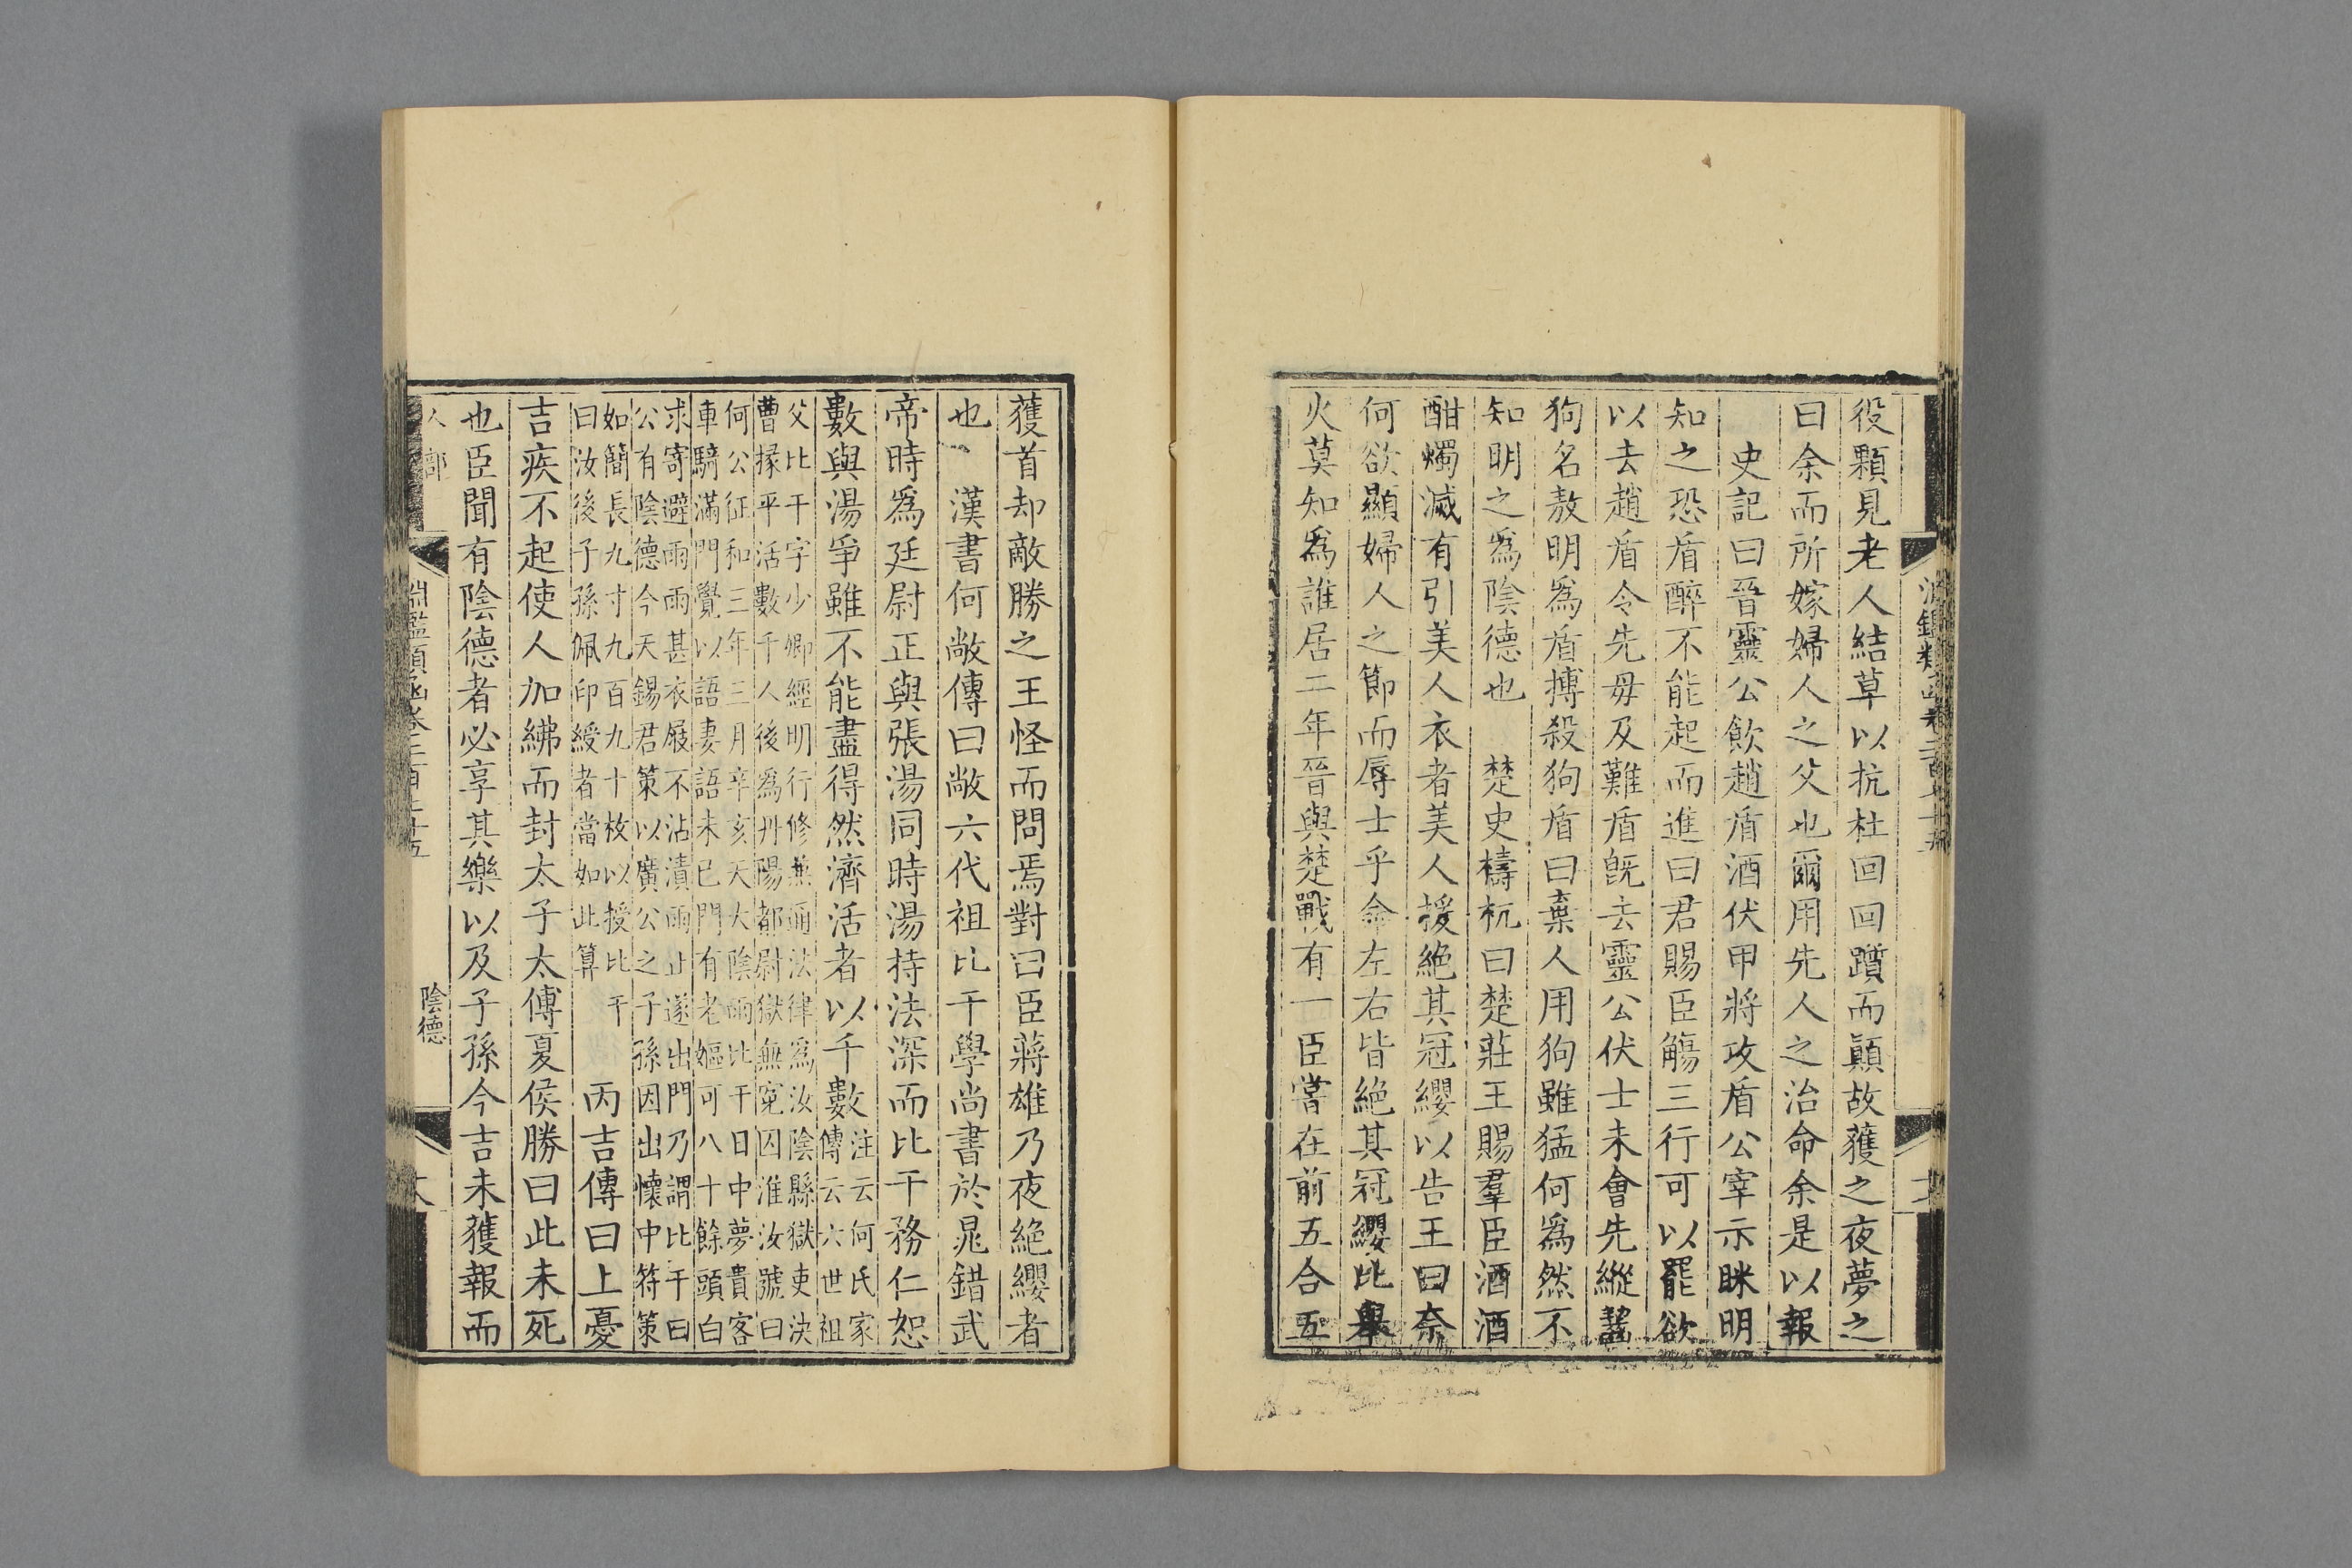 役顆見老人結草以抗杜回回躓而顚故獲之夜夢之
曰余而所嫁婦人之父也爾用先人之治命余是以報
史記曰晉靈公飮趙盾酒伏甲將攻盾公宰示眯明
知之恐盾醉不能起而進曰君賜臣觴三行可以罷欲
以去趙盾令先毋及難盾旣去靈公伏士未會先縱齧
狗名敖明爲盾搏殺狗盾曰棄人用狗雖猛何爲然不
知明之爲陰德也　楚史檮杌曰楚莊王賜羣臣酒酒
酣燭滅有引美人衣者美人援絶其冠纓以告王曰奈
何欲顯婦人之節而辱士乎命左右皆絶其冠纓比舉
火莫知爲誰居二年晉與楚戰有一臣嘗在前五合五
獲首却敵勝之王怪而問焉對曰臣蔣雄乃夜絶纓者
也　漢書何敞傳曰敞六代祖比干學尚書於晁錯武
帝時爲廷尉正與張湯同時湯持法深而比干務仁恕
數與湯爭雖不能盡得然濟活者以千數
注云何氏家
傳云六世祖
父比干字少卿經明行修兼通法律爲汝陰縣獄吏決
曹掾平活數千人後爲丹陽都尉獄無寃囚淮汝號曰
何公征和三年三月辛亥天大陰雨比干日中夢貴客
車騎滿門覺以語妻語未已門有老嫗可八十餘頭白
求寄避雨雨甚衣屐不沾漬雨止遂出門乃謂比干曰
公有陰德今天錫君策以廣公之子孫因出懷中符策
如簡長九寸九百九十枚以授比干
曰汝後子孫佩印綬者當如此算
丙吉傳曰上憂
吉疾不起使人加紼而封太子太傅夏侯勝曰此未死
也臣聞有陰德者必享其樂以及子孫今吉未獲報而
人部
淵鑑類函卷二百七十五
陰德